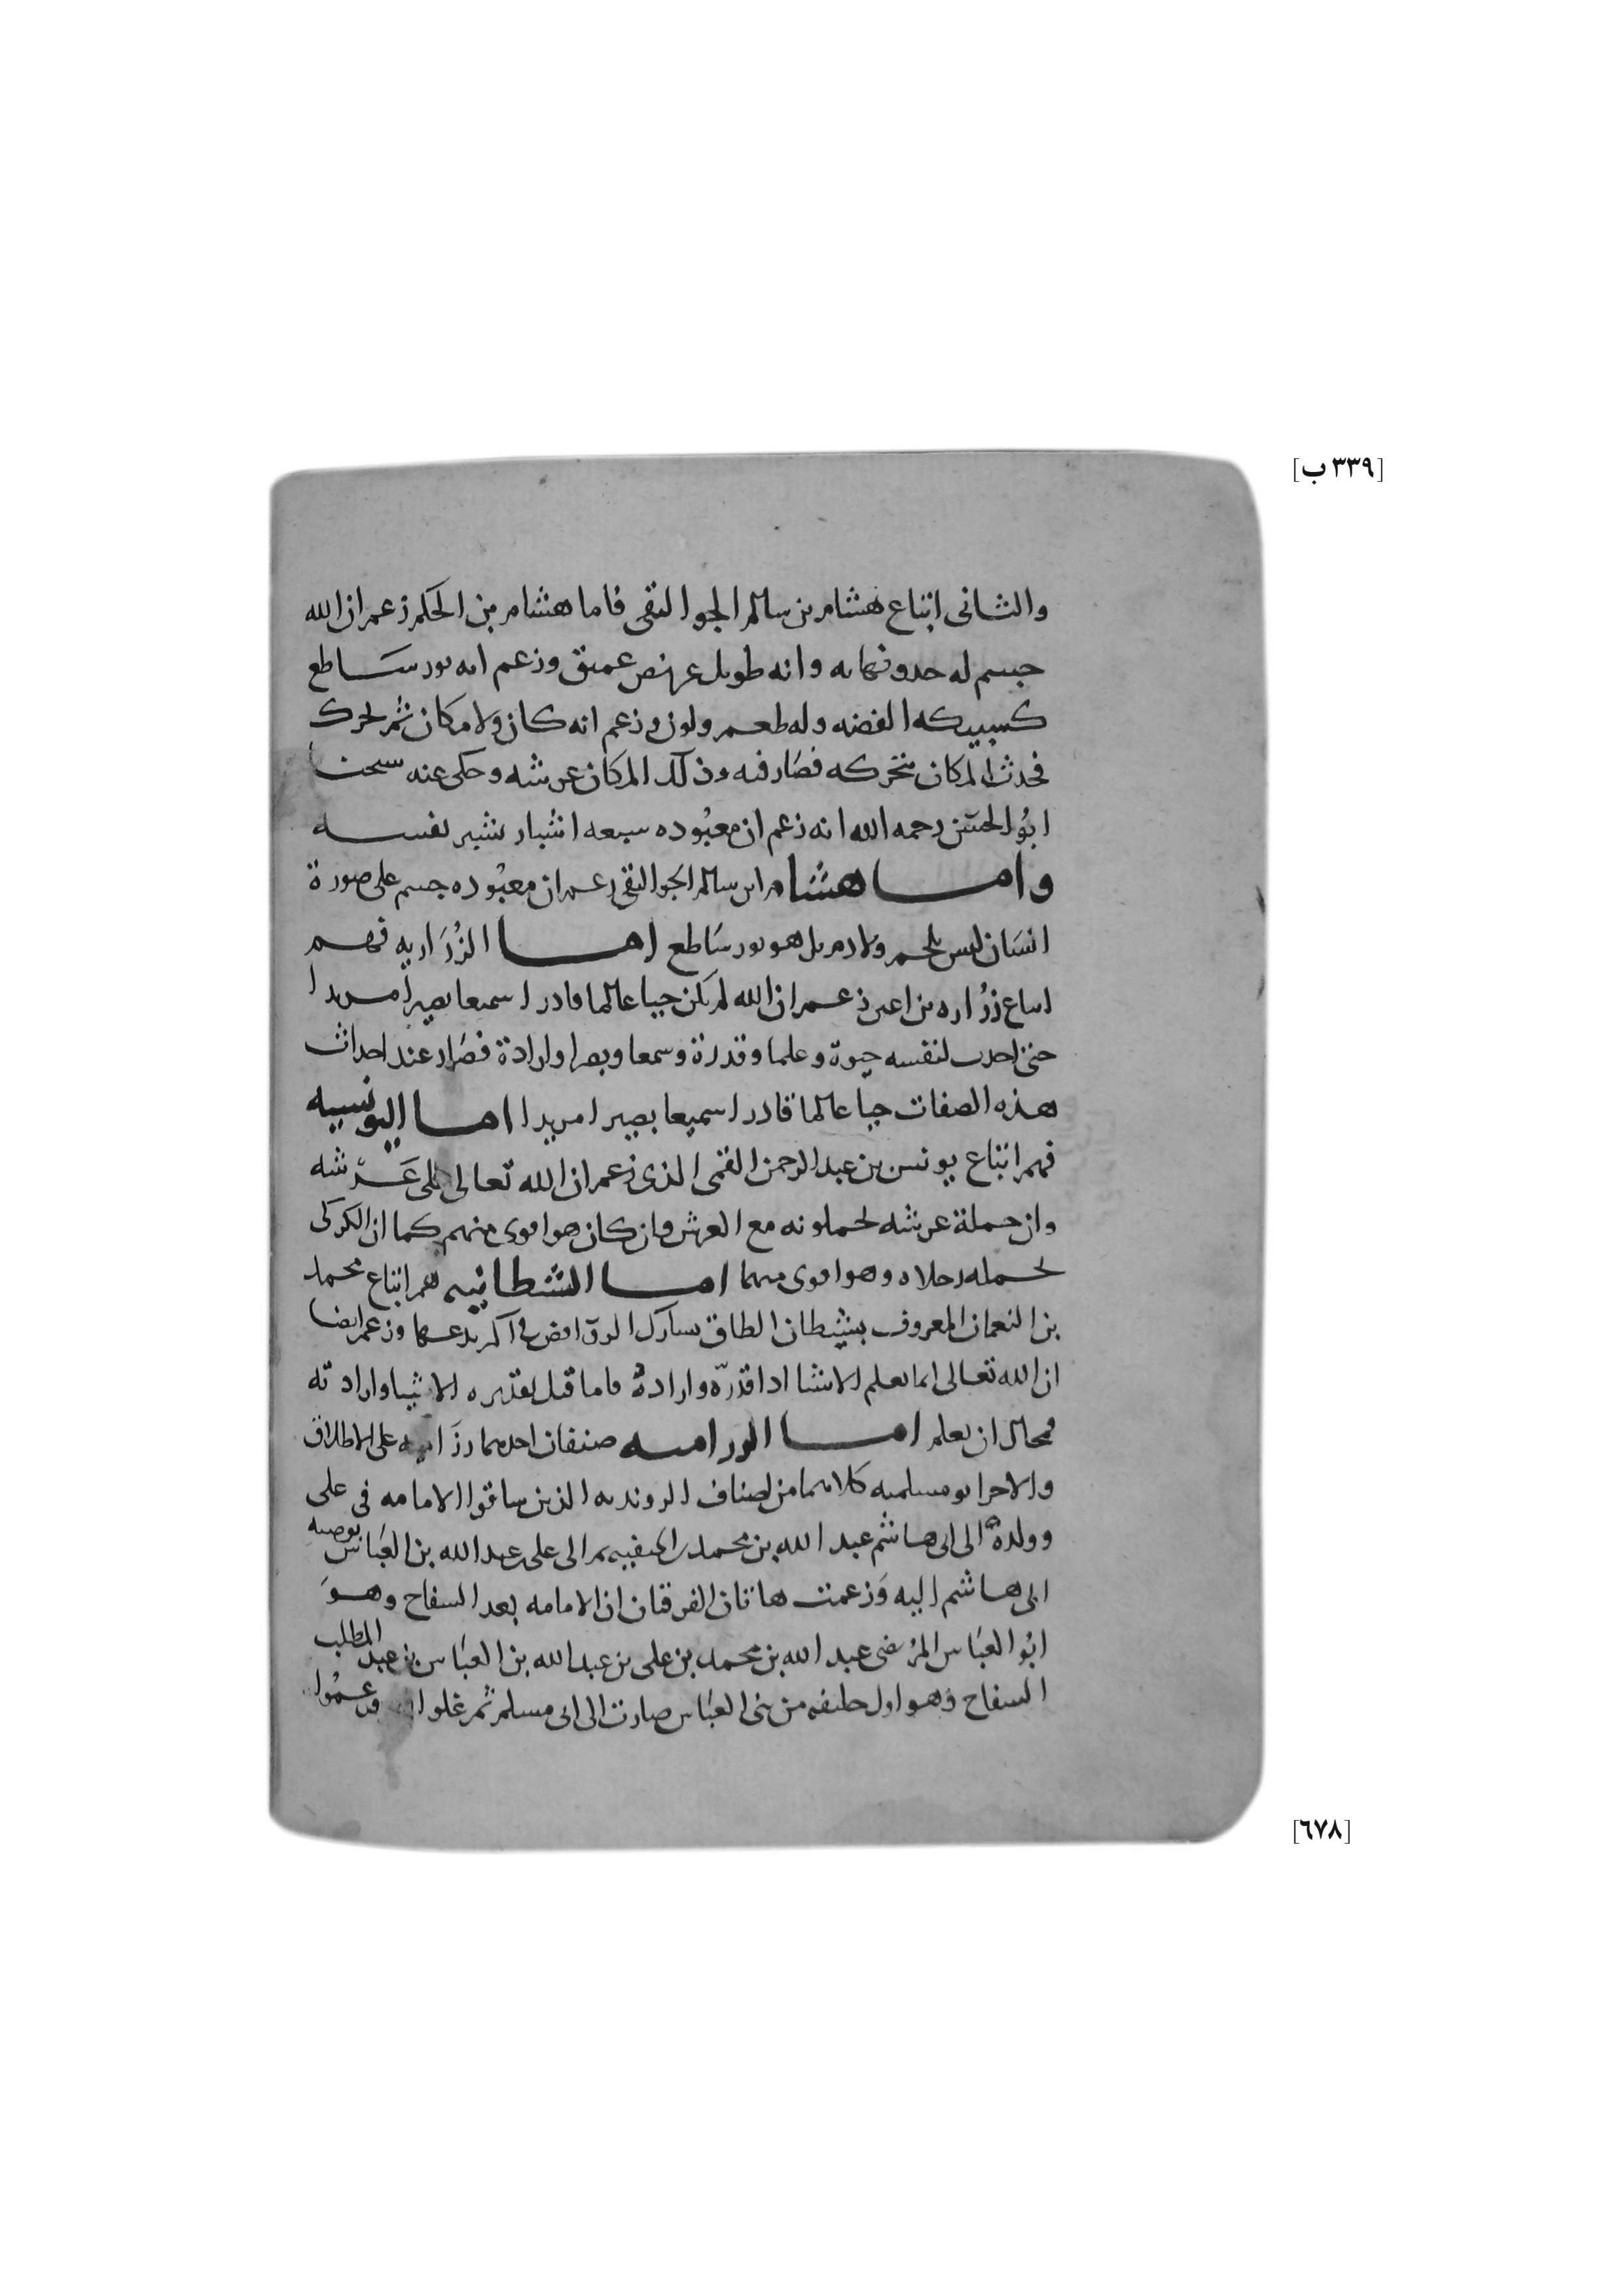 [٣٣٩ ب]
والثانى اتباع هشام بن سالم الجوالقى فاما هشام بن الحكم زعم ان الله
جسم له حد ونهايه وانه طويل عريض عميق وزعم انه نور ساطع
كسبيكه الفضه وله طعم ولون وزعم انه كان ولا مكان ثم تحرك
فحدث المكان بتحركه فصار فيه وذلك المكان عرشه وحكى عنه شيخنا
ابو الحسن رحمه الله انه زعم ان معبوده سبعه اشبار بشبر نفسه
واما هشام ابن سالم الجوالقى زعم ان معبوده جسم على صورة
انسان ليس بلحم ولا دم بل هو نور ساطع اما الزراريه فهم
اتباع زراره بن اعين زعم ان الله لم يكن حيا عالما قادرا سميعا بصيرا مريدا
حتى احدث لنفسه حيوة وعلما وقدرة وسمعا وبصرا وارادة فصار عند احداث
هذه الصفات حيا عالما قادرا سميعا بصيرا مريدا اما اليونسيه
فهم اتباع يونس بن عبد الرحمن القمى الذى زعم ان الله تعالى على عرشه
وان حملة عرشه يحملونه مع العرش وان كان هو اقوى منهم كما ان الكركى
يحمله رجلاه وهو اقوى منهما اما الشيطانيه هم اتباع محمد
بن النعمان المعروف بشيطان الطاق شارك الروافض فى اكثر بدعها وزعم ايضا
ان الله تعالى انما يعلم الاشيا اذا قدره واراده فاما قبل تقديره الاشيا وارادته
فمحال ان يعلم اما الرزاميه صنفان احدهما رزاميه على الاطلاق
والاخر ابو مسلميه كلاهما من اصناف الروندية الذين ساقوا الامامه فى على
وولده الى ابى هاشم عبد الله بن محمد بن الحنفيه ثم الى على بن عبد الله بن العباس بوصيه
ابى هاشم اليه وزعمت هاتان الفرقتان ان الامامه بعد السفاح وهو
ابو العباس المرتضى عبد الله بن محمد بن على بن عبد الله بن العباس بن عبد المطلب
السفاح وهو اول خليفه من بنى العباس صارت الى ابى مسلم ثم غلوا وزعموا
[٦٧٨]